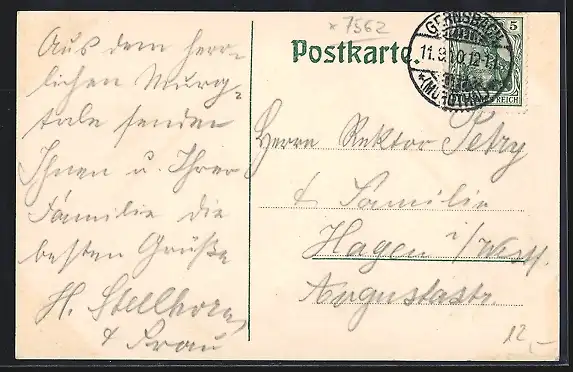 x 7562
Postkarte.
GERNSBACH
11.9.10.12-1N.
*(MURGTHAL)
5
REICH
Aus dem herr-
lichen Murg-
tale senden
Ihnen u. Ihrer
Familie die
besten Grüße
H. Stellhorn
& Frau
Herrn Rektor Petry
& Familie
Hagen i/Westf.
Augustastr.
12,-